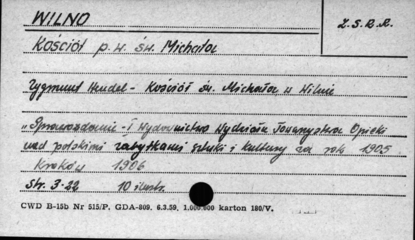 WILNO
Z.S.R.R.
Kościół p.w. św. Michała
Zygmunt Hendel - Kościół św. Michała w Wilnie
"Sprawozdanie - I Wydawnictwo Wydziału Towarzystwa Opieki
nad polskimi zabytkami sztuki i kultury za rok 1905
Kraków 1906
Str. 3-22 10 ilustr.
CWD B-15b Nr 515/P. GDA-809. 6.3.59. 1.000.000 karton 180/V.